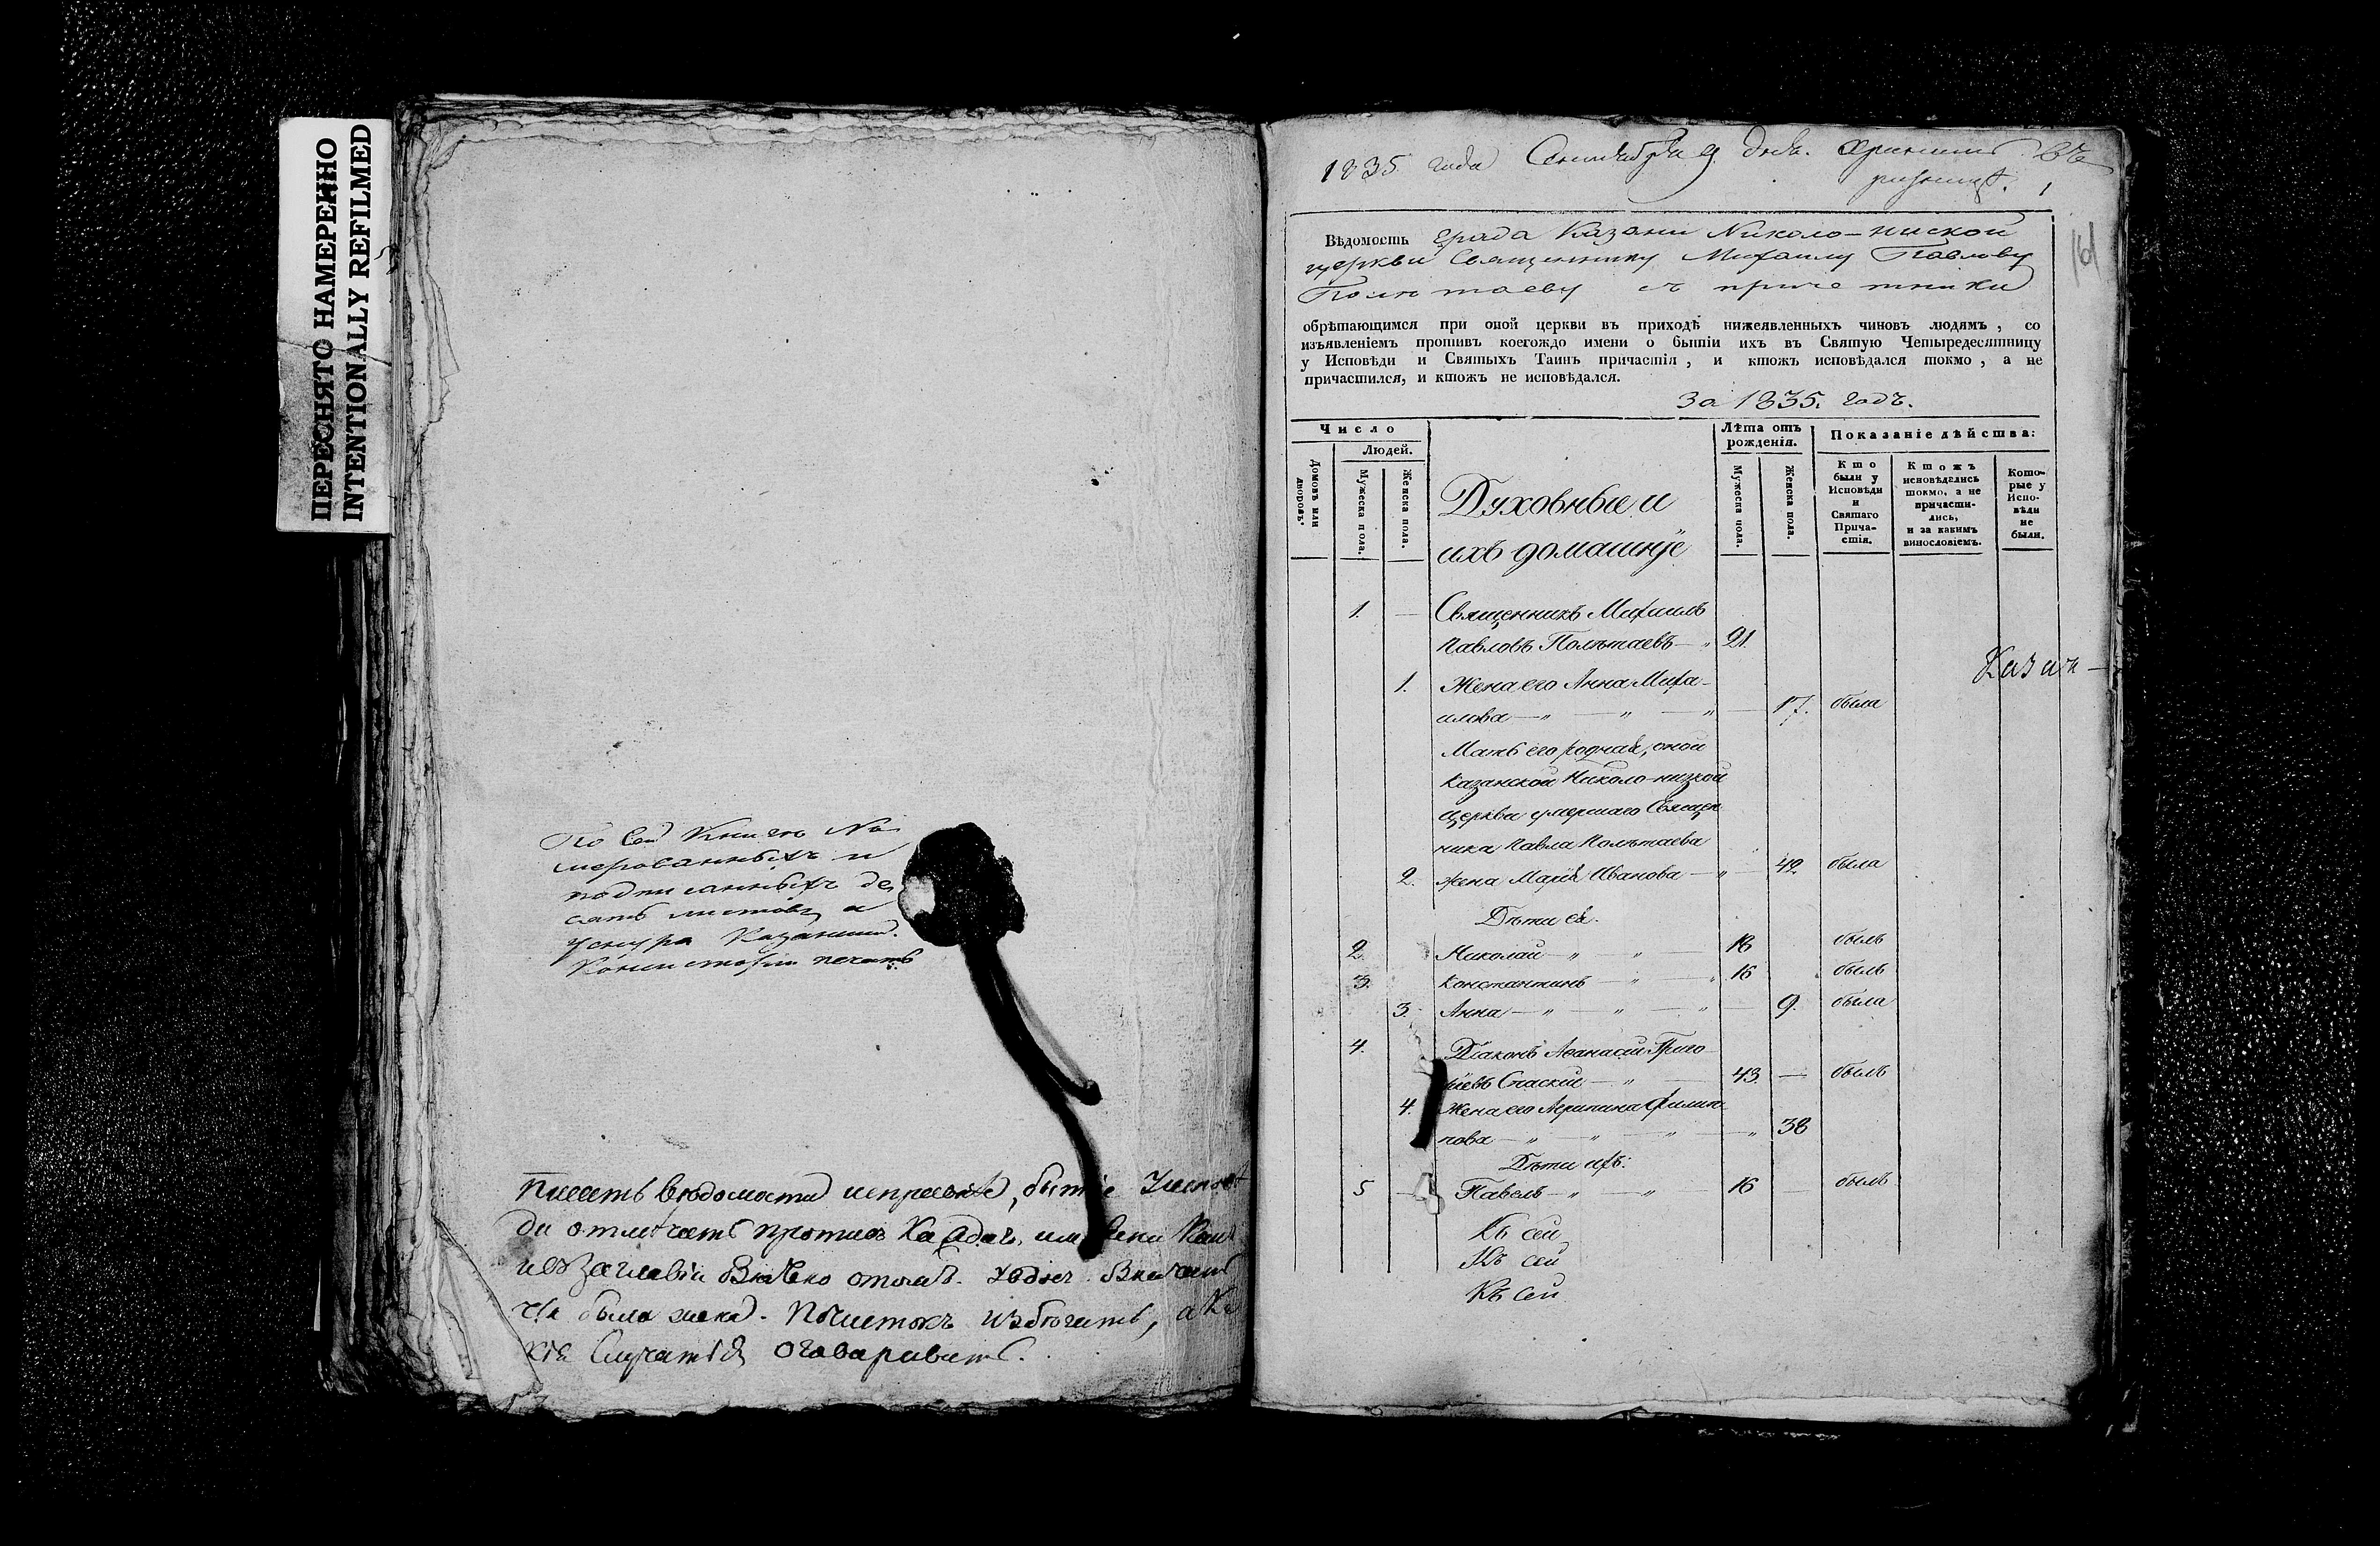 ПЕРЕСНЯТО НАМЕРЕННО
INTENTIONALLY REFILMED
По сей Книге Ну-
мерованныхъ и
подписанныхъ де
сять листовъ, а
у снура Казанской
Консисторіи печать
писать вѣдомости исправнѣе, бытіе Исповѣ
ди отмѣчать противъ каждаго имени
была жена. Почистокъ избѣгать, а
оговаривать.
1835 года Сентября 9 дня. Хранить въ
ризницѣ. 1
161
Вѣдомость града Казани Николо-ниской
церкви Священнику Михаилу Павлову
Полѣтаеву съ причетники
обрѣтающимся при оной церкви въ приходѣ нижеявленныхъ чиновъ людямъ, со
изъявленіемъ противъ коегождо имени о бытіи ихъ въ Святую Четыредесятницу
у Исповѣди и Святыхъ Таинъ причастія, и ктожъ исповѣдался токмо, а не
причастился, и ктожъ не исповѣдался.
За 1835. годъ.
Число
Людей.
Домовъ или дворовъ.
Мужеска пола.
Женска пола.
Духовные и
ихъ домашніе
Лѣта отъ
рожденія.
Мужеска пола.
Женска пола.
Показаніе дѣйства:
Кто
были у
Исповѣди
и
Святаго
Прича-
стія.
Ктожъ
исповѣдались
токмо, а не
причасти-
лись,
и за какимъ
винословіемъ.
Кото-
рые у
Испо-
вѣди
не
были.
1. — Священникъ Михаилъ
Павловъ Полѣтаевъ — 21.
1. Жена его Анна Миха-
илова — 17. была
Мать его родная, оной
Казанской Николо-низкой
Церкви умершаго Священ
ника Павла Полѣтаева
2. жена Марія Иванова — 42. была
Дѣти ея.
2. Николай — 18 былъ
3. Константинъ — 16 былъ
3. Анна — 9. была
4. Діаконъ Аѳанасій Григо-
ріевъ Спаскій — 43. — былъ
4. Жена его Агрипина Филип
пова — 38
Дѣти ихъ:
5 Павелъ — 16 былъ
Къ сей
Къ сей
Къ сей